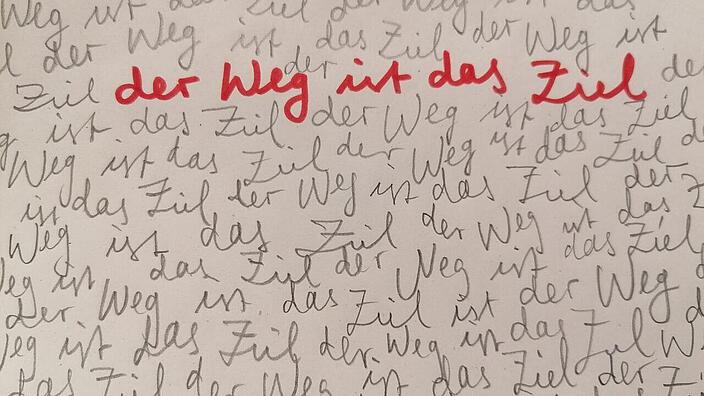 Weg ist das Ziel der Weg ist das
der Weg ist das Ziel der Weg ist
Ziel der Weg ist das Ziel der
der
ist das Ziel der Weg ist das Ziel
Weg ist das Ziel der Weg ist das Ziel
ist das Ziel der Weg ist das Ziel der
Weg ist das Ziel der Weg ist das
Weg ist das Ziel der Weg ist das Ziel
der Weg ist das Ziel ist der Weg
Weg ist das Ziel der Weg ist das Ziel
das Ziel der Weg ist das Ziel der